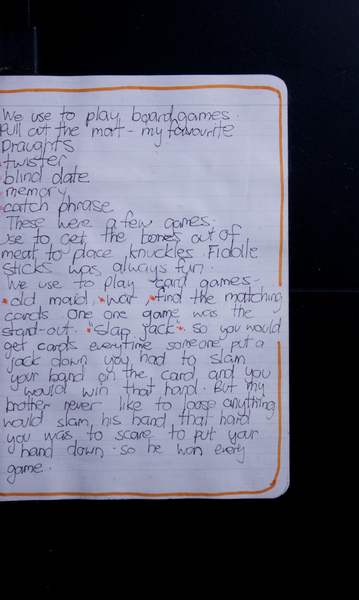 We use to play boardgames.
Pull out the mat - my favourite
Draughts
twister
blind date
memory
catch phrase
These were a few games.
use to get the bones out of
meat to place knuckles. Fiddle
sticks was always fun.
We use to play card games-
*old maid, *war, *find the matching
cards. One one game was the
stand-out. *slap jack*. so you would
get cards everytime someone put a
jack down you had to slam
your hand on the card and you
would win that hand. But my
brother never like to loose anything
would slam his hand that hard
you was to scare to put your
hand down so he won every
game.